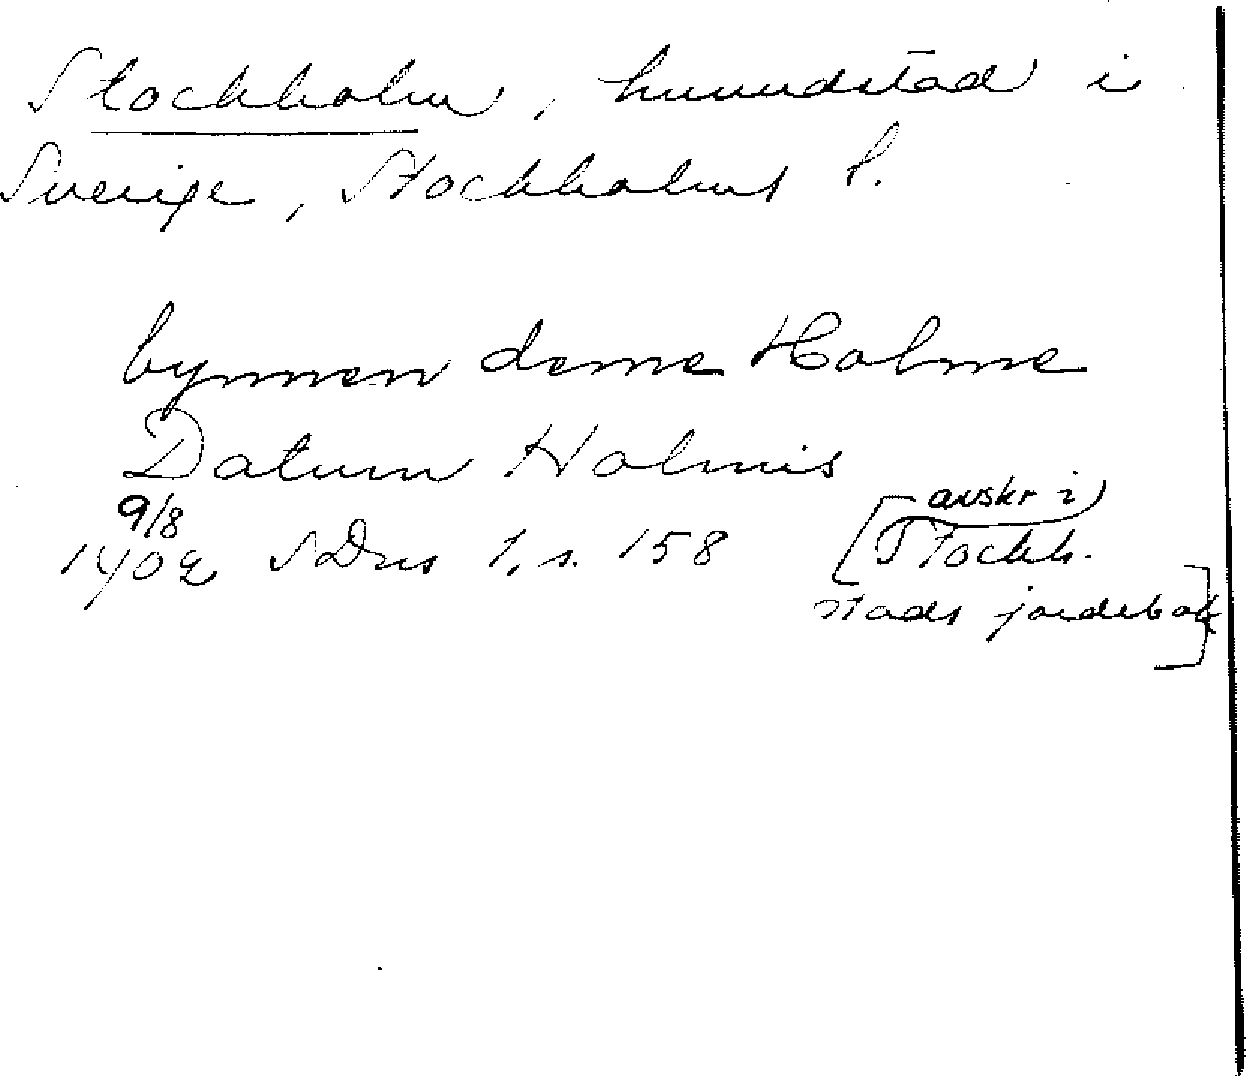 Stockholm, huvudstad i
Sverige, Stockholms l.
bymmen deme Holme
Datum Holmis
9/8
1402 SDns 1, s. 158 [avskr i
Stockh.
stads jordebok]